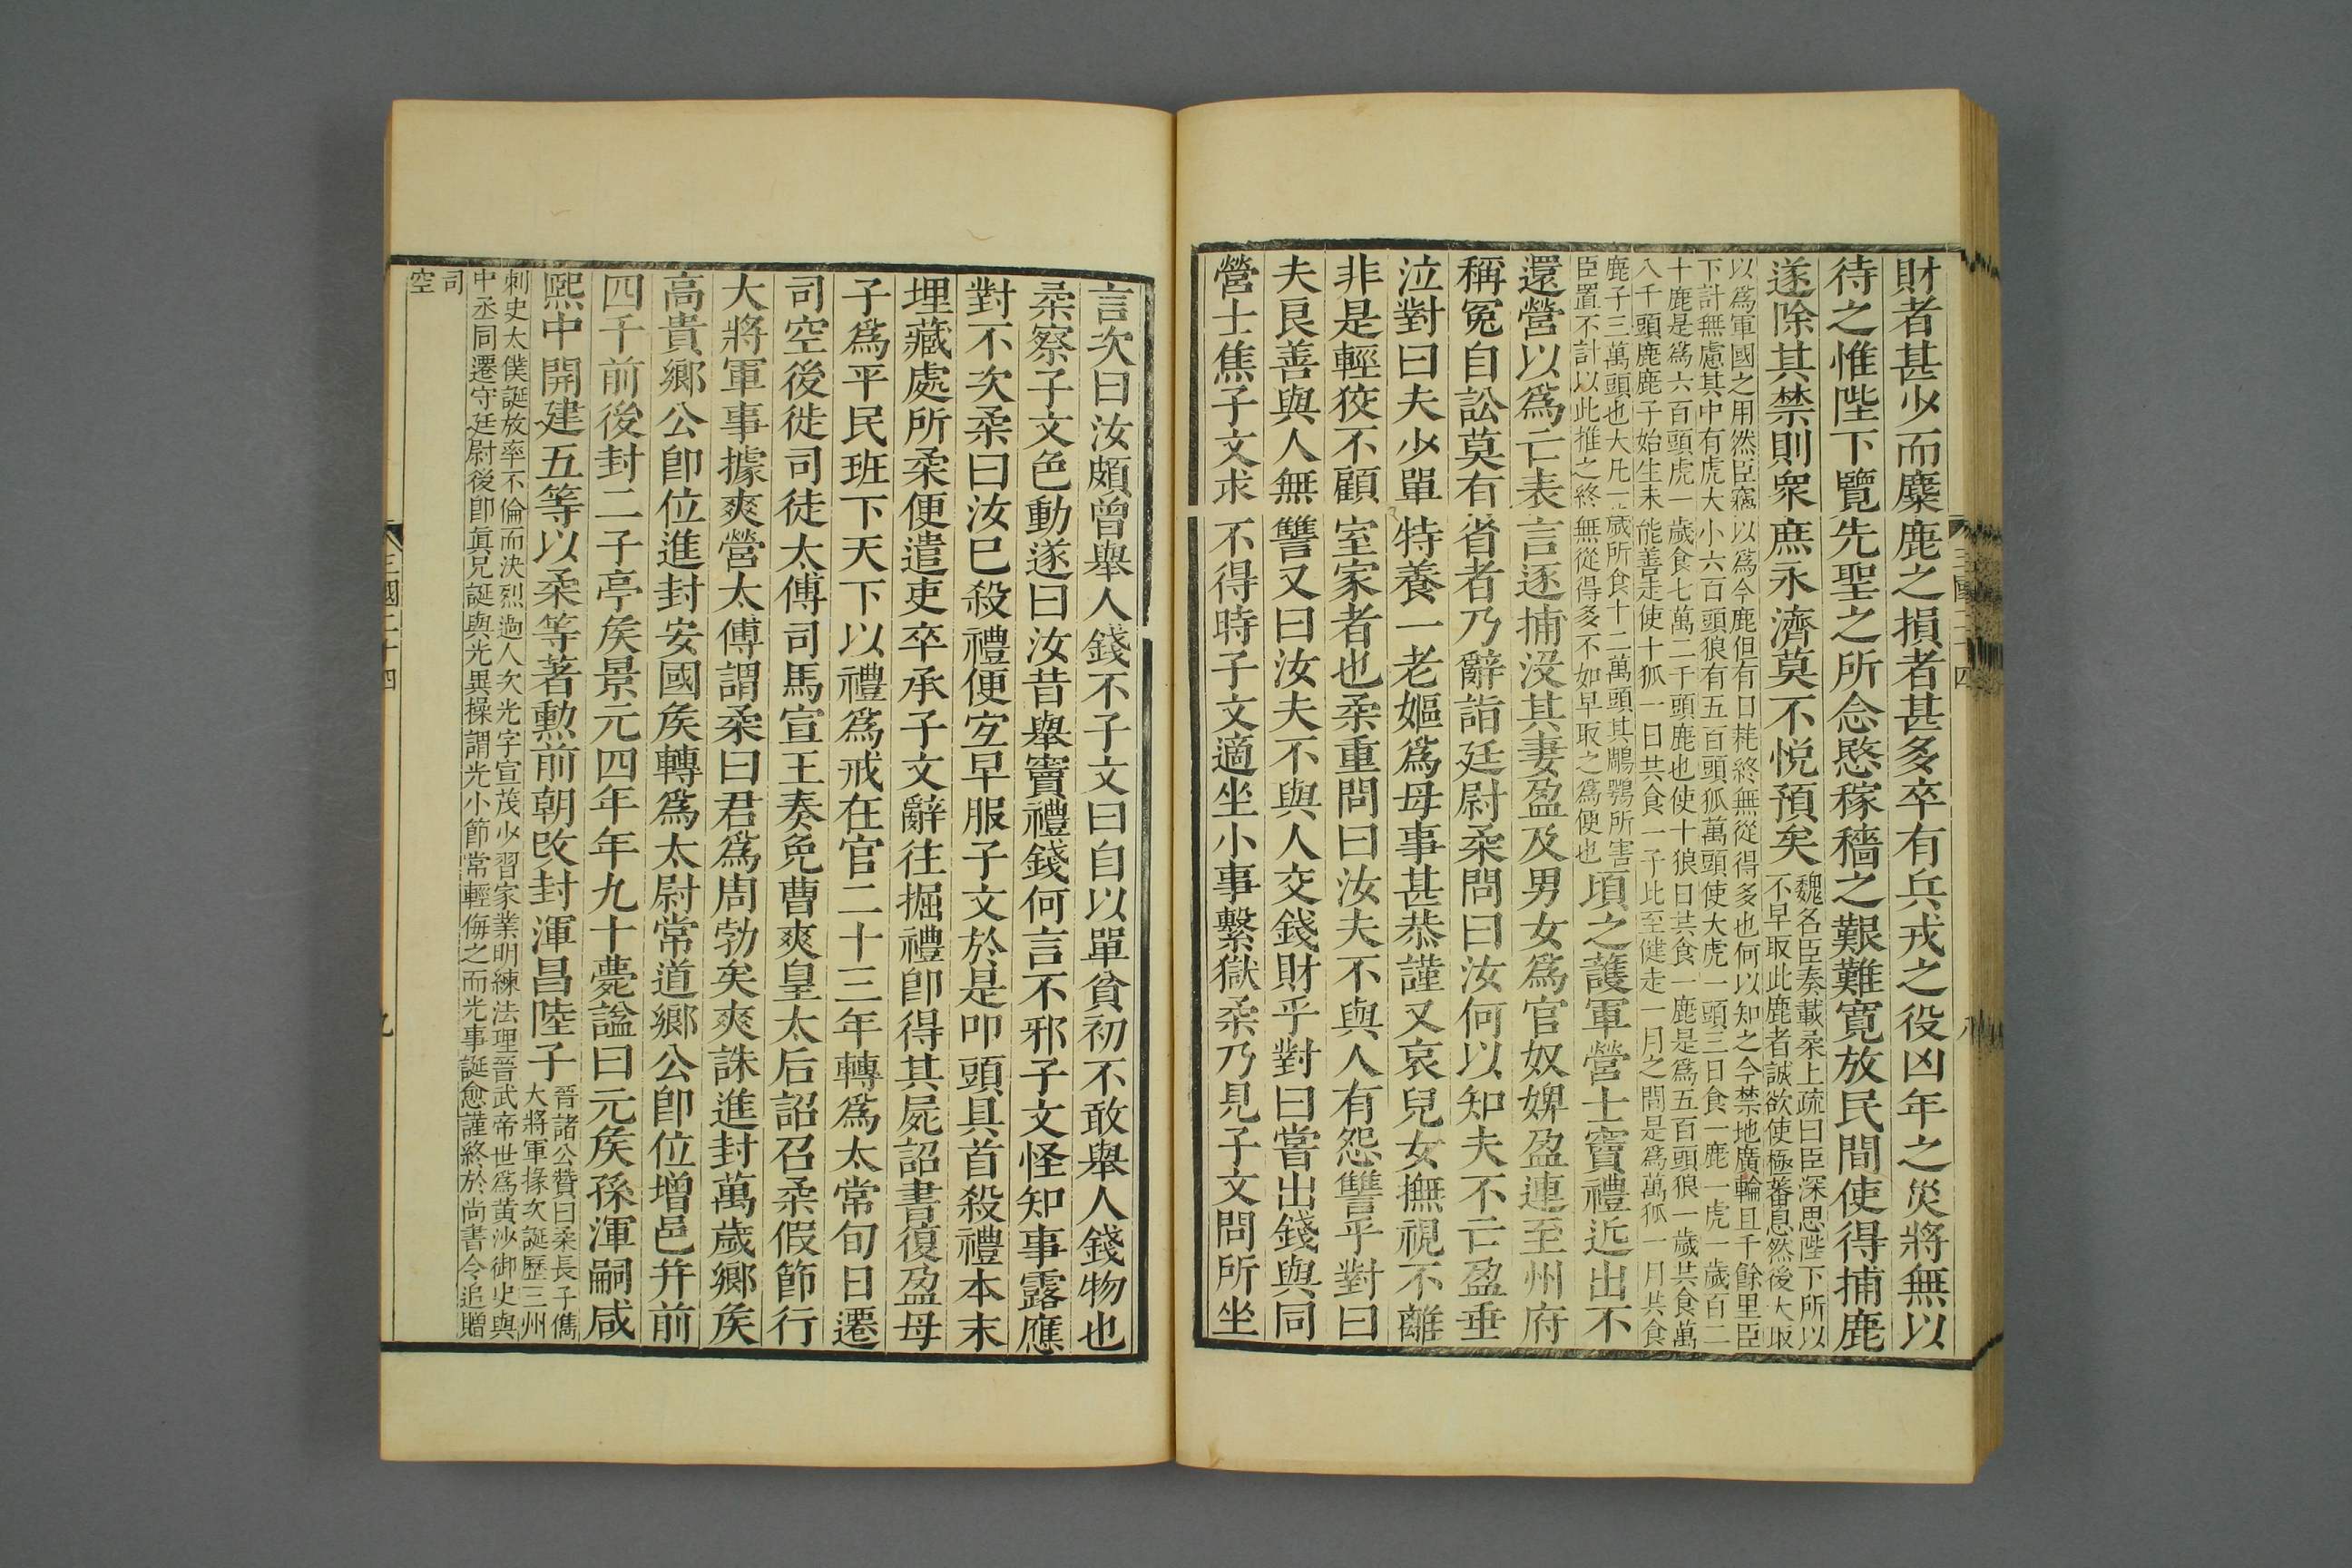 財者甚少而麋鹿之損者甚多卒有兵戎之役凶年之災將無以
待之惟陛下覽先聖之所念愍稼穡之艱難寬放民間使得捕鹿
遂除其禁則衆庶永濟莫不悅預矣
魏名臣奏載柔上疏曰臣深思陛下所以
不早取此鹿者誠欲使極蕃息然後大取
以爲軍國之用然臣竊以爲今鹿但有日耗終無從得多也何以知之今禁地廣輪且千餘里臣
下計無慮其中有虎大小六百頭狼有五百頭狐萬頭使大虎一頭三日食一鹿一虎一歲百二
十鹿是爲六百頭虎一歲食七萬二千頭鹿也使十狼日共食一鹿是爲五百頭狼一歲共食萬
八千頭鹿鹿子始生未能善走使十狐一日共食一子比至健走一月之間是爲萬狐一月共食
鹿子三萬頭也大凡一歲所食十二萬頭其鵰鶚所害
臣置不計以此推之終無從得多不如早取之爲便也
頃之護軍營士竇禮近出不
還營以爲亡表言逐捕没其妻盈及男女爲官奴婢盈連至州府
稱冤自訟莫有省者乃辭詣廷尉柔問曰汝何以知夫不亡盈垂
泣對曰夫少單特養一老嫗爲母事甚恭謹又哀兒女撫視不離
非是輕狡不顧室家者也柔重問曰汝夫不與人有怨讐乎對曰
夫良善與人無讐又曰汝夫不與人交錢財乎對曰嘗出錢與同
營士焦子文求不得時子文適坐小事繫獄柔乃見子文問所坐
三國二十四
八
言次曰汝頗曾舉人錢不子文曰自以單貧初不敢舉人錢物也
柔察子文色動遂曰汝昔舉竇禮錢何言不邪子文怪知事露應
對不次柔曰汝已殺禮便宜早服子文於是叩頭具首殺禮本末
埋藏處所柔便遣吏卒承子文辭往掘禮卽得其屍詔書復盈母
子爲平民班下天下以禮爲戒在官二十三年轉爲太常旬日遷
司空後徙司徒太傅司馬宣王奏免曹爽皇太后詔召柔假節行
大將軍事據爽營太傅謂柔曰君爲周勃矣爽誅進封萬歲鄉矦
高貴鄉公卽位進封安國矦轉爲太尉常道鄉公卽位增邑幷前
四千前後封二子亭矦景元四年年九十薨諡曰元矦孫渾嗣咸
熙中開建五等以柔等著勳前朝改封渾昌陸子
晉諸公贊曰柔長子儁
大將軍掾次誕歷三州
刺史太僕誕放率不倫而決烈過人次光字宣茂少習家業明練法理晉武帝世爲黃沙御史與
中丞同遷守廷尉後卽眞兄誕與光異操謂光小節常輕侮之而光事誕愈謹終於尚書令追贈
司
空
三國二十四
九